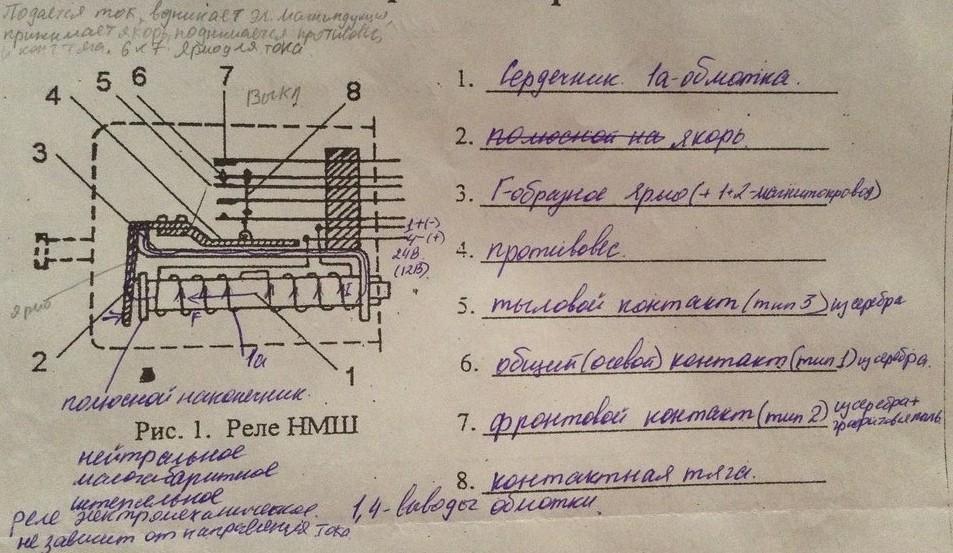 Подаётся ток, возникает эл. магн. индукция,
принимает якорь, поднимается противовес,
и конт тяга. 6 к 7. Ярмо для тока
4
5
6
7
Выкл
8
3
1+(-)
4-(+)
24В
(12В)
Ярмо
F
2
1а
1
полюсной наконечник.
Рис. 1. Реле НМШ
нейтральное
малогабаритное
штепсельное
реле электромеханическое. 1,4- выводы обмотки.
не зависит от направления тока
1. Сердечник. 1а-обмотка.
2. полюсной на якорь.
3. Г-образное ярмо (+1+2-магнитопровод)
4. противовес.
5. тыловой контакт (тип 3) из серебра
6. общий (осевой) контакт (тип 1) из серебра.
7. фронтовой контакт (тип 2) из серебра+
8. контактная тяга.